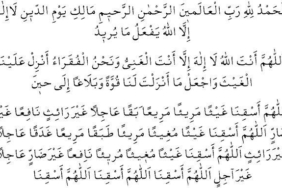 لْحَمْدُ لِلَّهِ رَبِّ الْعَالَمِينَ الرَّحْمٰنِ الرَّحِيمِ مَالِكِ يَوْمِ الدِّينِ لَاإِلٰهَ
إِلَّا اللَّهُ يَفْعَلُ مَا يُرِيدُ
للَّهُمَّ أَنْتَ اللَّهُ لَا إِلٰهَ إِلَّا أَنْتَ الْغَنِيُّ وَنَحْنُ الْفُقَرَاءُ أَنْزِلْ عَلَيْنَا
الْغَيْثَ وَاجْعَلْ مَا أَنْزَلْتَ لَنَا قُوَّةً وَبَلَاغًا إِلَى حِينٍ
للَّهُمَّ أَسْقِنَا غَيْثًا مَرِيئًا مَرِيعًا نَافِعًا عَاجِلًا غَيْرَ رَائِثٍ نَافِعًا غَيْرَ
ضَارٍّ اَللَّهُمَّ أَسْقِنَا غَيْثًا مُغِيثًا مَرِيئًا طَبَقًا مَرِيعًا غَدَقًا عَاجِلًا
غَيْرَ رَائِثٍ اَللَّهُمَّ أَسْقِنَا غَيْثًا مُغِيثًا مَرِيئًا نَافِعًا غَيْرَ ضَارٍّ عَاجِلًا
غَيْرَ آجِلٍ اَللَّهُمَّ أَسْقِنَا اَللَّهُمَّ أَسْقِنَا اَللَّهُمَّ أَسْقِنَا